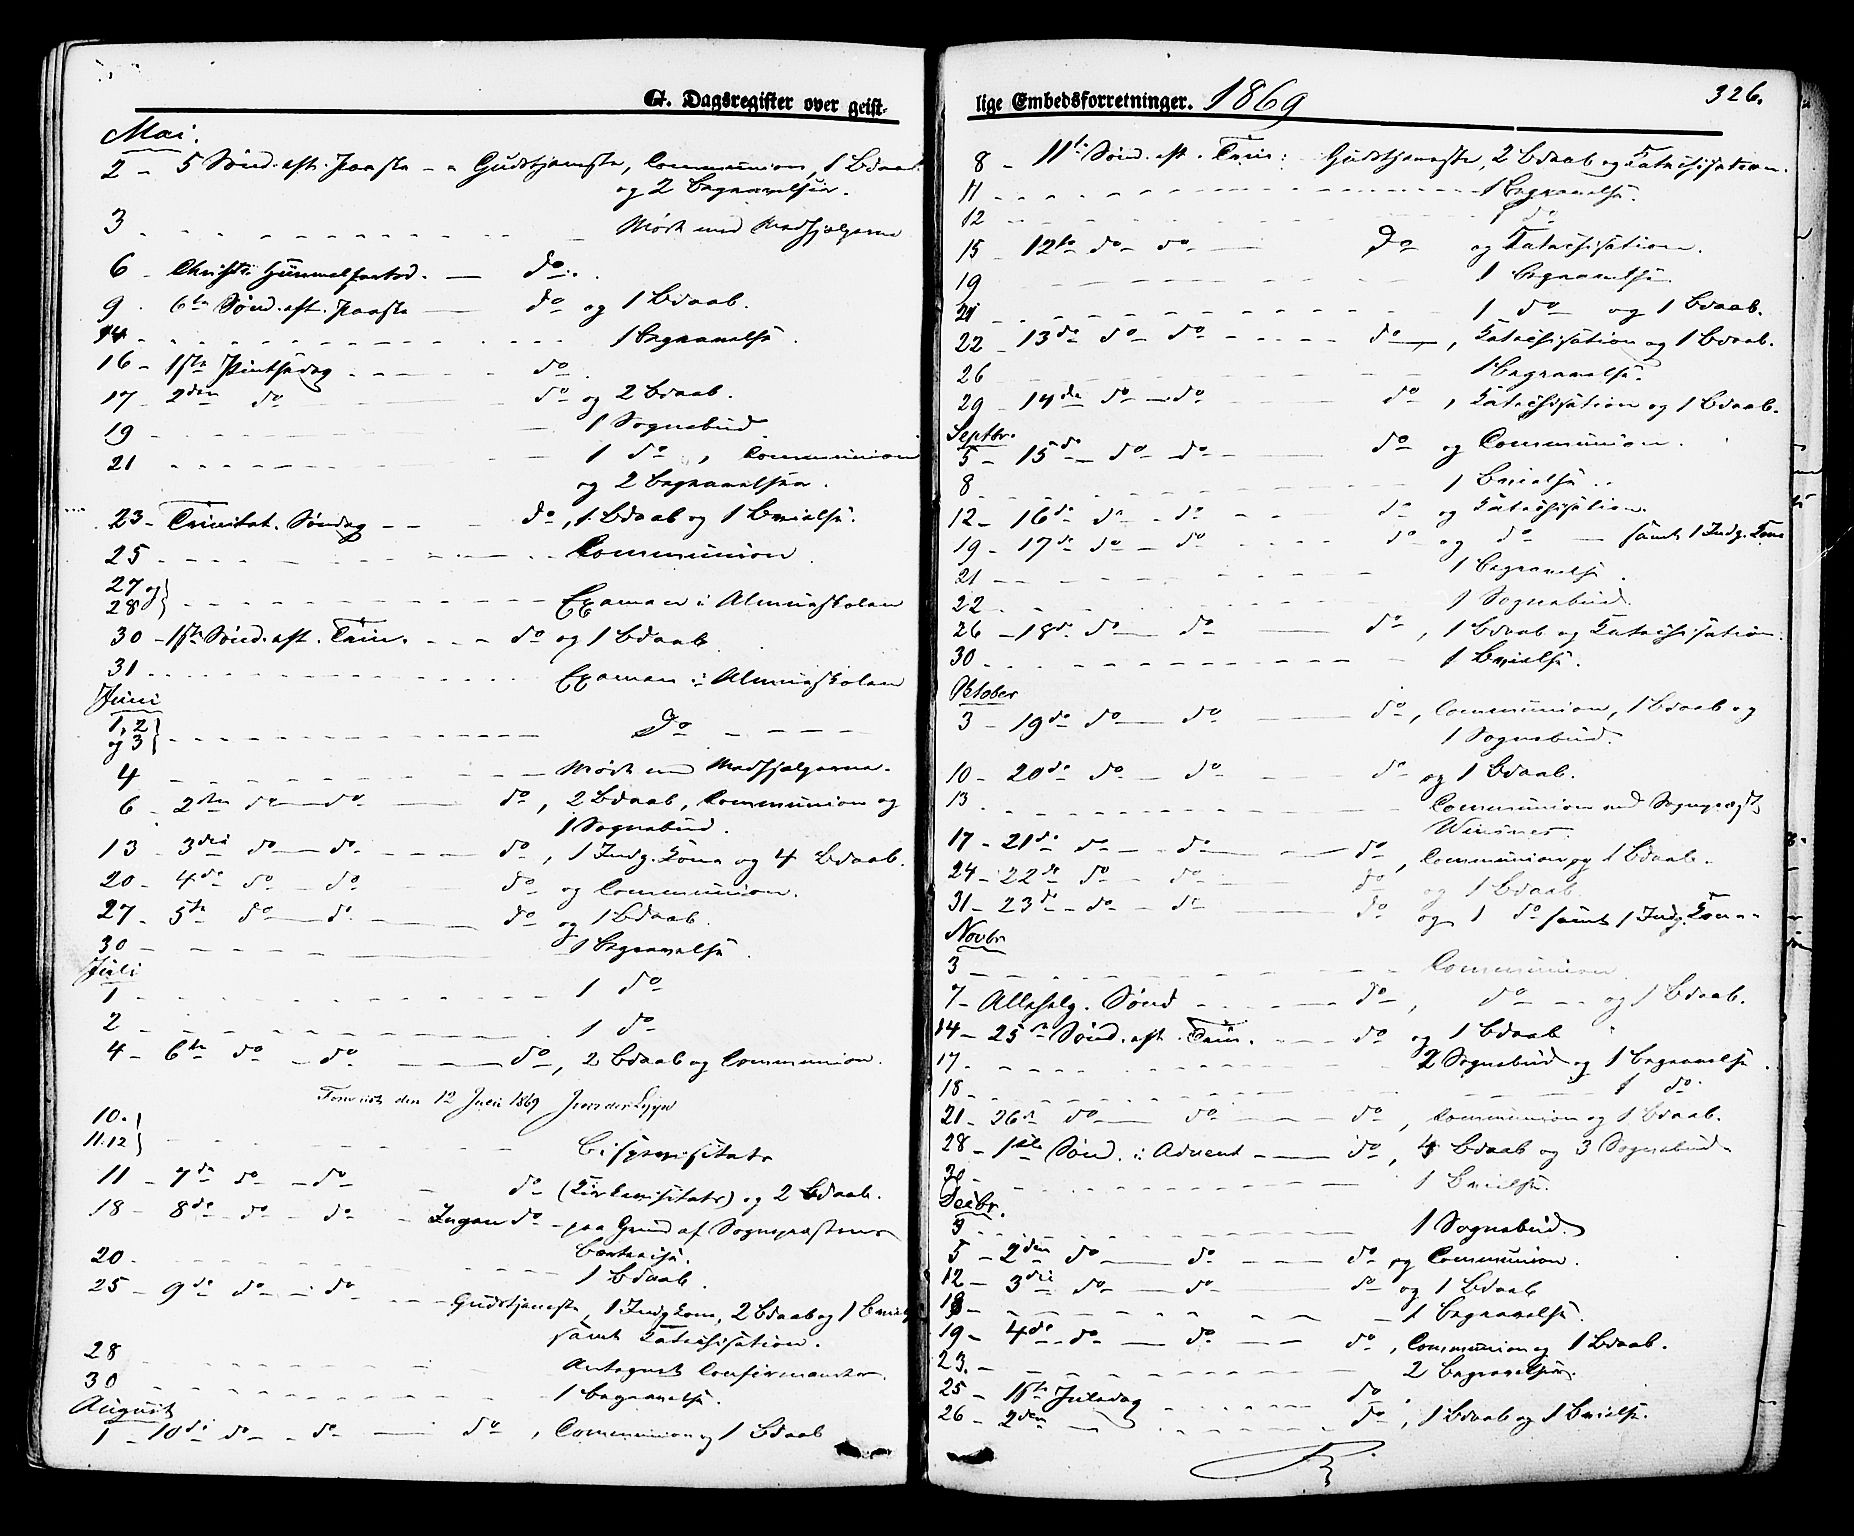 G. Dagsregister over geist-
Mai.
2 - 5 Sønd. eft. Paaske - - Gudstjeneste, Communion, 1 Bdaab
og 2 Begravelser.
3 - - - Møde med Medhjælperne
6 - Christi Himmelfartsd. - do.
9 . 6te Sønd. eft. Paaske - do og 1 Bdaab.
14 - - - 1 Begravelse.
16 - 1ste Pintsedag - - - do.
17 - 2den do - - - do og 2 Bdaab.
19 - - - 1 Sognebud.
21 - - - 1 do, Communion
og 2 Begravelser.
23 - Trinitat. Søndag - - do, 1 Bdaab og 1 Vielse.
25 - - - Communion
27 og
28 } - - - Examen i Almueskolen
30 - 1ste Sønd. eft. Trin. - - - do og 1 Bdaab.
31 - - - Examen i Almueskolen
Juni
1, 2
og 3 } - - - Do - - -
4 - - - Møde med Medhjelperne.
6 - 2den do - do - do, 2 Bdaab, Communion og
1 Sognebud.
13 - 3die do - do - - - do, 1 Indg. Kone og 4 Bdaab.
20 - 4de do - do - - - do og Communion.
27 - 5te do - do - do og 1 Bdaab.
30 - - - 1 Begravelse.
Juli
1 - - - 1 do
2 - - - 1 do
4 - 6te do - do - do, 2 Bdaab og Communion.
Forevist den 12 Juli 1869
10.
11. 12 } - - - Bispevisitats
11 - 7de do - do - do (Kirkevisitats) og 2 Bdaab.
18 - 8de do - do - Ingen do - paa Grund af Sognepræstens
Bortreise.
20 - - - 1 Bdaab.
25 - 9de do - do - - - Gudstjeneste, 1 Indg Kone, 2 Bdaab og 1 Vielse
samt Katechisation.
28 - - - Antagnet Confirmanter.
30 - - - 1 Begravelse.
August
1 - 10de do - do - do, Communion og 1 Bdaab
lige Embedsforretninger. 1869
326.
8 - 11te Sønd. eft. Trin: Gudstjeneste, 2 Bdaab og Katechisation.
11 - - - 1 Begravelse.
12 - - - 1 do
15 - 12te do - do - Do og Katechisation.
19 - - - 1 Begravelse
21 - - - 1 do og 1 Bdaab.
22 - 13de do - do - do, Katechisation og 1 Bdaab.
26 - - - 1 Begravelse.
29 - 14de do - do - do, Katechisation og 1 Bdaab.
Septbr.
5 - 15de - do - do - do og Communion.
8 - - - 1 Vielse.
12 - 16de do - do - do og Katechisation.
19 - 17de do - do - do og do - samt 1 Indg. Kone
21 - - - 1 Begravelse.
22 - - - 1 Sognebud.
26 - 18de do - do - do, 1 Bdaab og Katechisation.
30 - - - 1 Vielse.
Oktober
3 - 19de do - do - do, Communion, 1 Bdaab og
1 Sognebud.
10 - 20de do - do - do og 1 Bdaab.
13 - - - Communion ved Sognepræst
Winsnes.
17 - 21de do - do - do, Communion og 1 Bdaab.
24 - 22de do - do - do og 1 Bdaab
31 - 23de - do - do - do og 1 do samt 1 Indg. Kone.
Novbr
3 - - - Communion
7 - Allehelg. Sønd - - - do, do - - og 1 Bdaab.
14 - 25de Sønd. eft. Trin. - - - do og 1 Bdaab
17 - - - 2 Sognebud og 1 Begravelse.
18 - - - 1 do.
21 - 26de do - do - do, Communion og 1 Bdaab.
28 - 1ste Sønd. i Advent - do, 4 Bdaab og 3 Sognebud.
30 - - - 1 Vielse.
Decbr.
3 - - - 1 Sognebud.
5 - 2den do - do - do og Communion.
12 - 3die do - do - do og 1 Bdaab
18 - - - 1 Begravelse.
19 - 4de - do - do - do, Communion og 1 Bdaab.
23. - - - 2 Begravelser.
25 - 1ste Juledag - - - do
26 - 2den - - - do, 1 Bdaab og 1 Vielse.